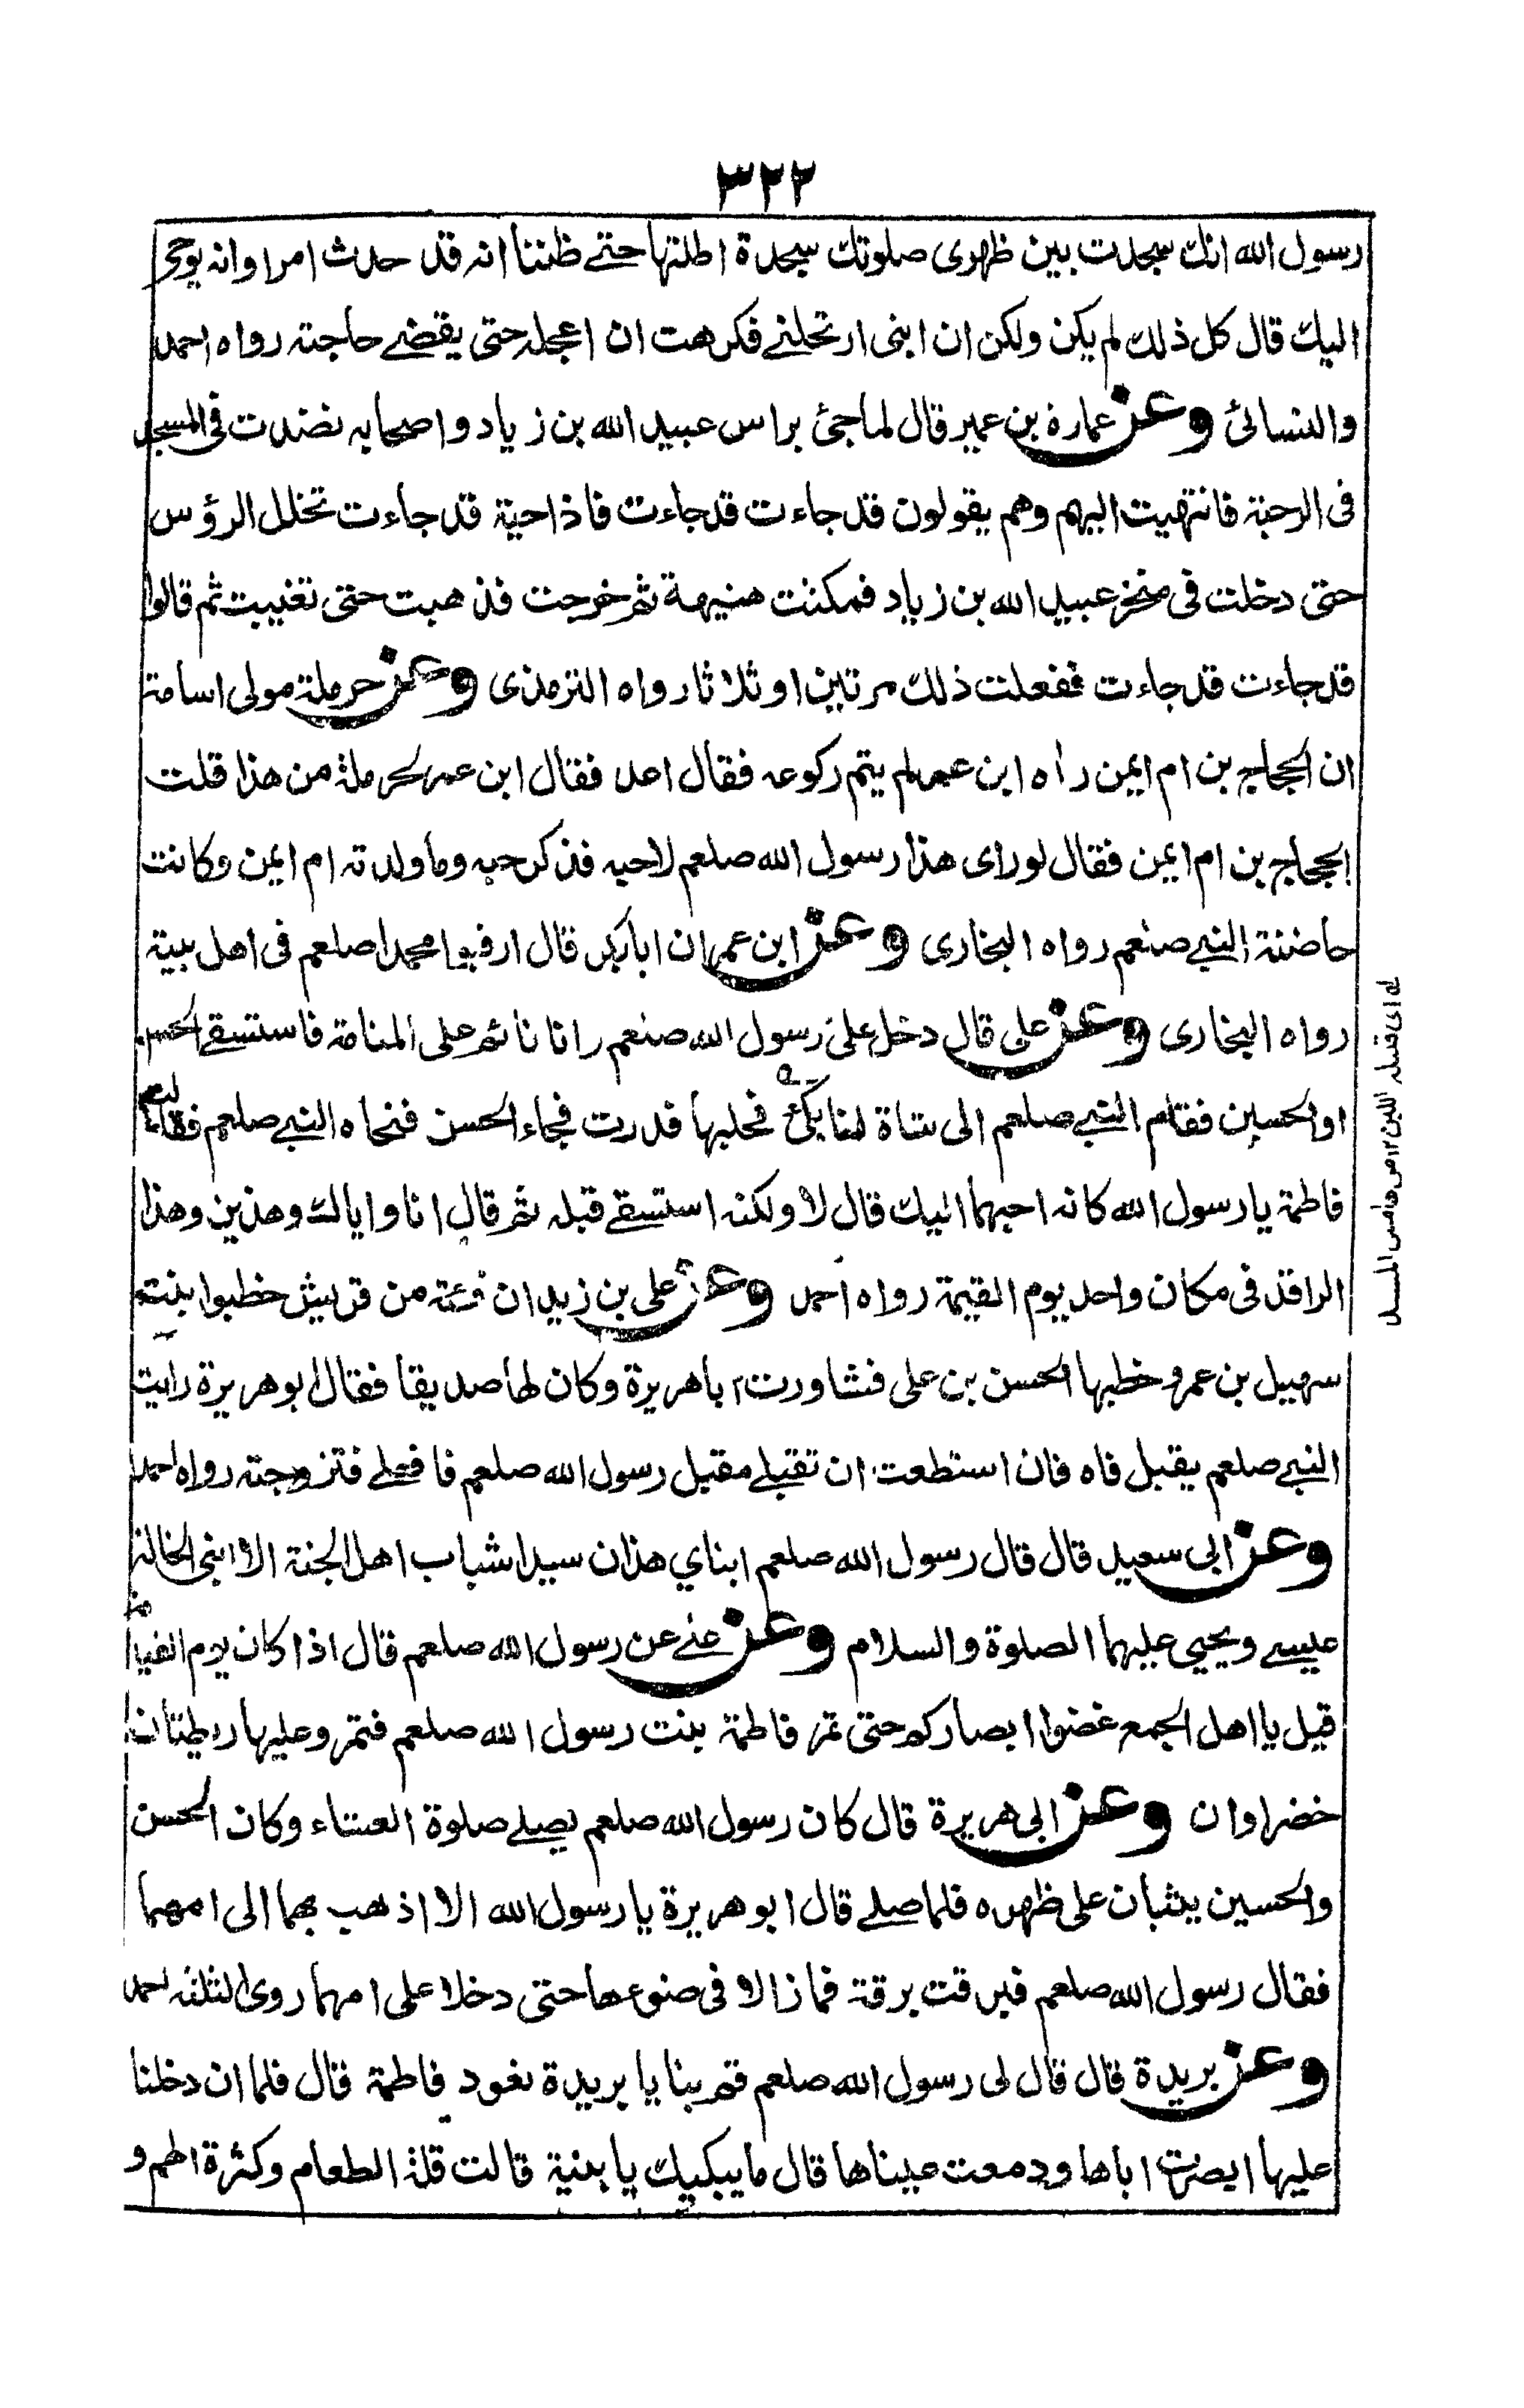 ٣٢٢
رسول الله انك سجدت بين ظهري صلوتك سجدة اطلتها حتے ظننا انه قد حدث امر او انه يوحى
اليك قال كل ذلك لم يكن ولكن ان ابنى ارتحلنے فكرهت ان اعجله حتى يقضے حاجته رواه احمد
والنسائى وعن عمارة بن عمير قال لما جئ براس عبيد الله بن زياد واصحابه نضدت فى المسجد
فى الرحبة فانتهيت اليهم وهم يقولون قد جاءت قد جاءت فاذا حية قد جاءت تخلل الرؤس
حتى دخلت فى منخر عبيد الله بن زياد فمكثت هنيهة ثم خرجت فذهبت حتى تغيبت ثم قالوا
قد جاءت قد جاءت ففعلت ذلك مرتين او ثلاثا رواه الترمذى وعن حرملة مولى اسامة
ان الحجاج بن ام ايمن راه ابن عمر لم يتم ركوعه فقال اعد فقال ابن عمر لحرملة من هذا قلت
الحجاج بن ام ايمن فقال لو راى هذا رسول الله صلعم لاحبه فذكر حبه وما ولدته ام ايمن وكانت
حاضنة النبے صلعم رواه البخارى وعن ابن عمر ان ابا بكر قال ارقبوا محمدا صلعم فى اهل بيته
رواه البخارى وعن على قال دخل علىّ رسول الله صلعم وانا نائم على المنامة فاستسقے الحسن
او الحسين فقام النبے صلعم الى شاة لنا بكئ فحلبها فدرت فجاء الحسن فنحاه النبے صلعم فقالت
فاطمة يا رسول الله كانه احبهما اليك قال لا ولكنه استسقے قبله ثم قال انا واياك وهذين وهذا
الراقد فى مكان واحد يوم القيمة رواه احمد وعن على بن زيد ان فئة من قريش خطبوا بنت
سهيل بن عمرو خطبها الحسن بن على فشاورت ابا هريرة وكان لها صديقا فقال ابو هريرة رايت
النبے صلعم يقبل فاه فان استطعت ان تقبلے مقبل رسول الله صلعم فافعلے فتزوجته رواه احمد
وعن ابى سعيد قال قال رسول الله صلعم ابناي هذان سيدا شباب اهل الجنة الا ابنى الخالة
عيسے ويحيى عليهما الصلوة والسلام وعن علے عن رسول الله صلعم قال اذا كان يوم القيامة
قيل يا اهل الجمع غضوا ابصاركم حتى تمر فاطمة بنت رسول الله صلعم فتمر وعليها ريطتان
خضراوان وعن ابى هريرة قال كان رسول الله صلعم يصلے صلوة العشاء وكان الحسن
والحسين يثبان على ظهره فلما صلے قال ابو هريرة يا رسول الله الا اذهب بهما الى امهما
فقال رسول الله صلعم فبرقت برقة فما زالا فى ضوءها حتى دخلا على امهما روى الثلثة احمد
وعن بريدة قال قال لى رسول الله صلعم قم بنا يا بريدة نعود فاطمة قال فلما ان دخلنا
عليها ابصرت اباها ودمعت عيناها قال ما يبكيك يا بنية قالت قلة الطعام وكثرة الهم و
له اى قبله اللبن ١٢ من هامش